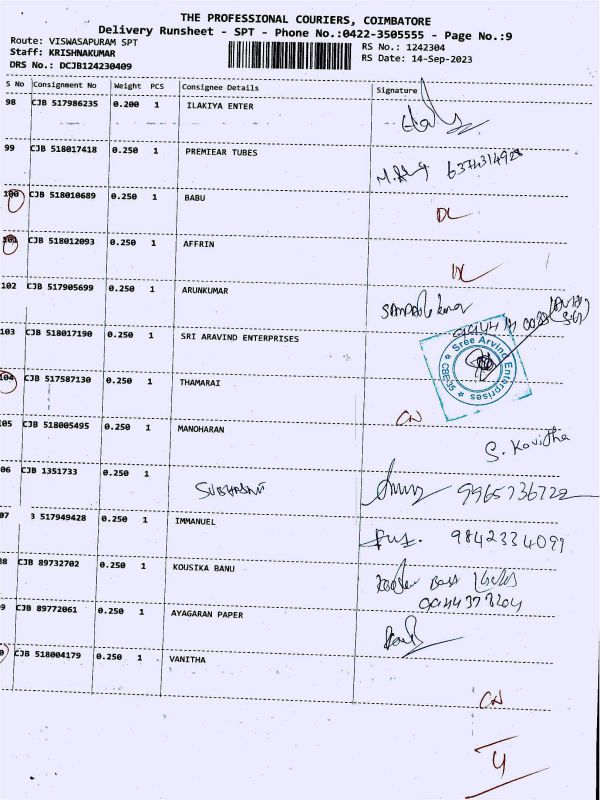 THE PROFESSIONAL COURIERS, COIMBATORE
Delivery Runsheet - SPT - Phone No.:0422-3505555 - Page No.:9
Route: VISWASAPURAM SPT
RS No.: 1242304
Staff: KRISHNAKUMAR
RS Date: 14-Sep-2023
DRS No.: DCJB124230409
S No Consignment No Weight PCS Consignee Details Signature
98 CJB 517986235 0.200 1 ILAKIYA ENTER
99 CJB 518017418 0.250 1 PREMIEAR TUBES
100 CJB 518010689 0.250 1 BABU DL
101 CJB 518012093 0.250 1 AFFRIN DL
102 CJB 517905699 0.250 1 ARUNKUMAR
103 CJB 518017190 0.250 1 SRI ARAVIND ENTERPRISES
Sree Arvind Enterprises CBE-35
104 CJB 517587130 0.250 1 THAMARAI CN
05 CJB 518005495 0.250 1 MANOHARAN S. Kavitha
06 CJB 1351733 0.250 1 9965736722
07 B 517949428 0.250 1 IMMANUEL 9842334099
08 CJB 89732702 0.250 1 KOUSIKA BANU
9 CJB 89772061 0.250 1 AYAGARAN PAPER
0 CJB 518004179 0.250 1 VANITHA CN
4